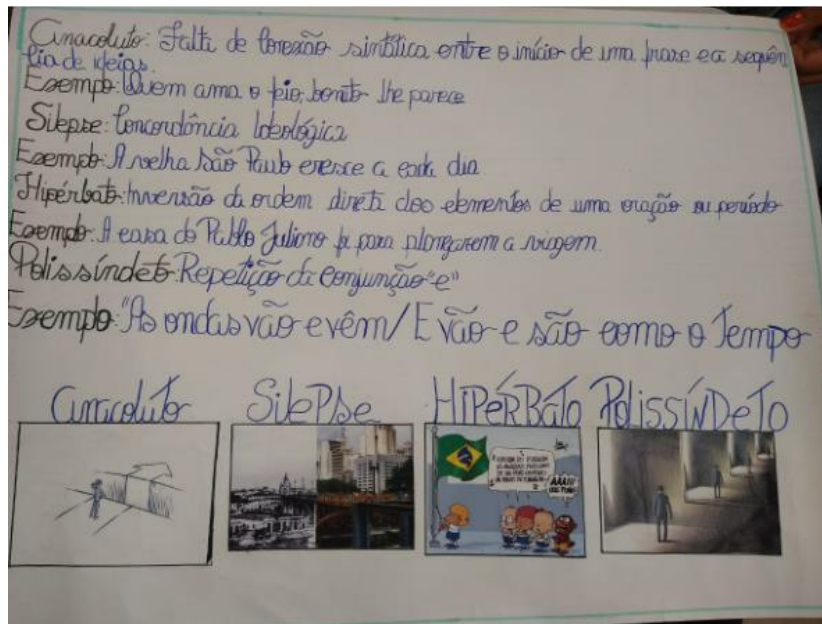 Anacoluto: Falta de Conexão sintática entre o início de uma frase e a sequên
cia de ideias.
Exemplo: Quem ama o feio, bonito lhe parece
Silepse: Concordância Ideológica
Exemplo: A velha São Paulo cresce a cada dia
Hipérbato: Inversão da ordem direta dos elementos de uma oração ou período
Exemplo: A casa do Pablo Juliano fu para planejarem a viagem.
Polissíndeto: Repetição da Conjunção "e"
Exemplo: "As ondas vão e vêm/ E vão e são como o Tempo
Anacoluto SilePse HIPÉRBATO POLISSÍNDETO